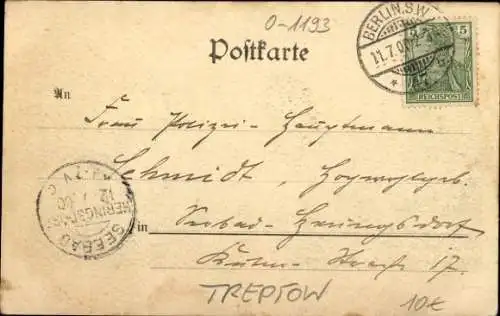 O-1193
BERLIN.S.W.
11.7.00
5
REICHSPOST
Postkarte
An
Frau Polizei-Hauptmann
Schmidt,
SEEBAD
HERINGSDORF
12.7.00
in Seebad-Heringsdorf
Straße 17.
TREPTOW
10€